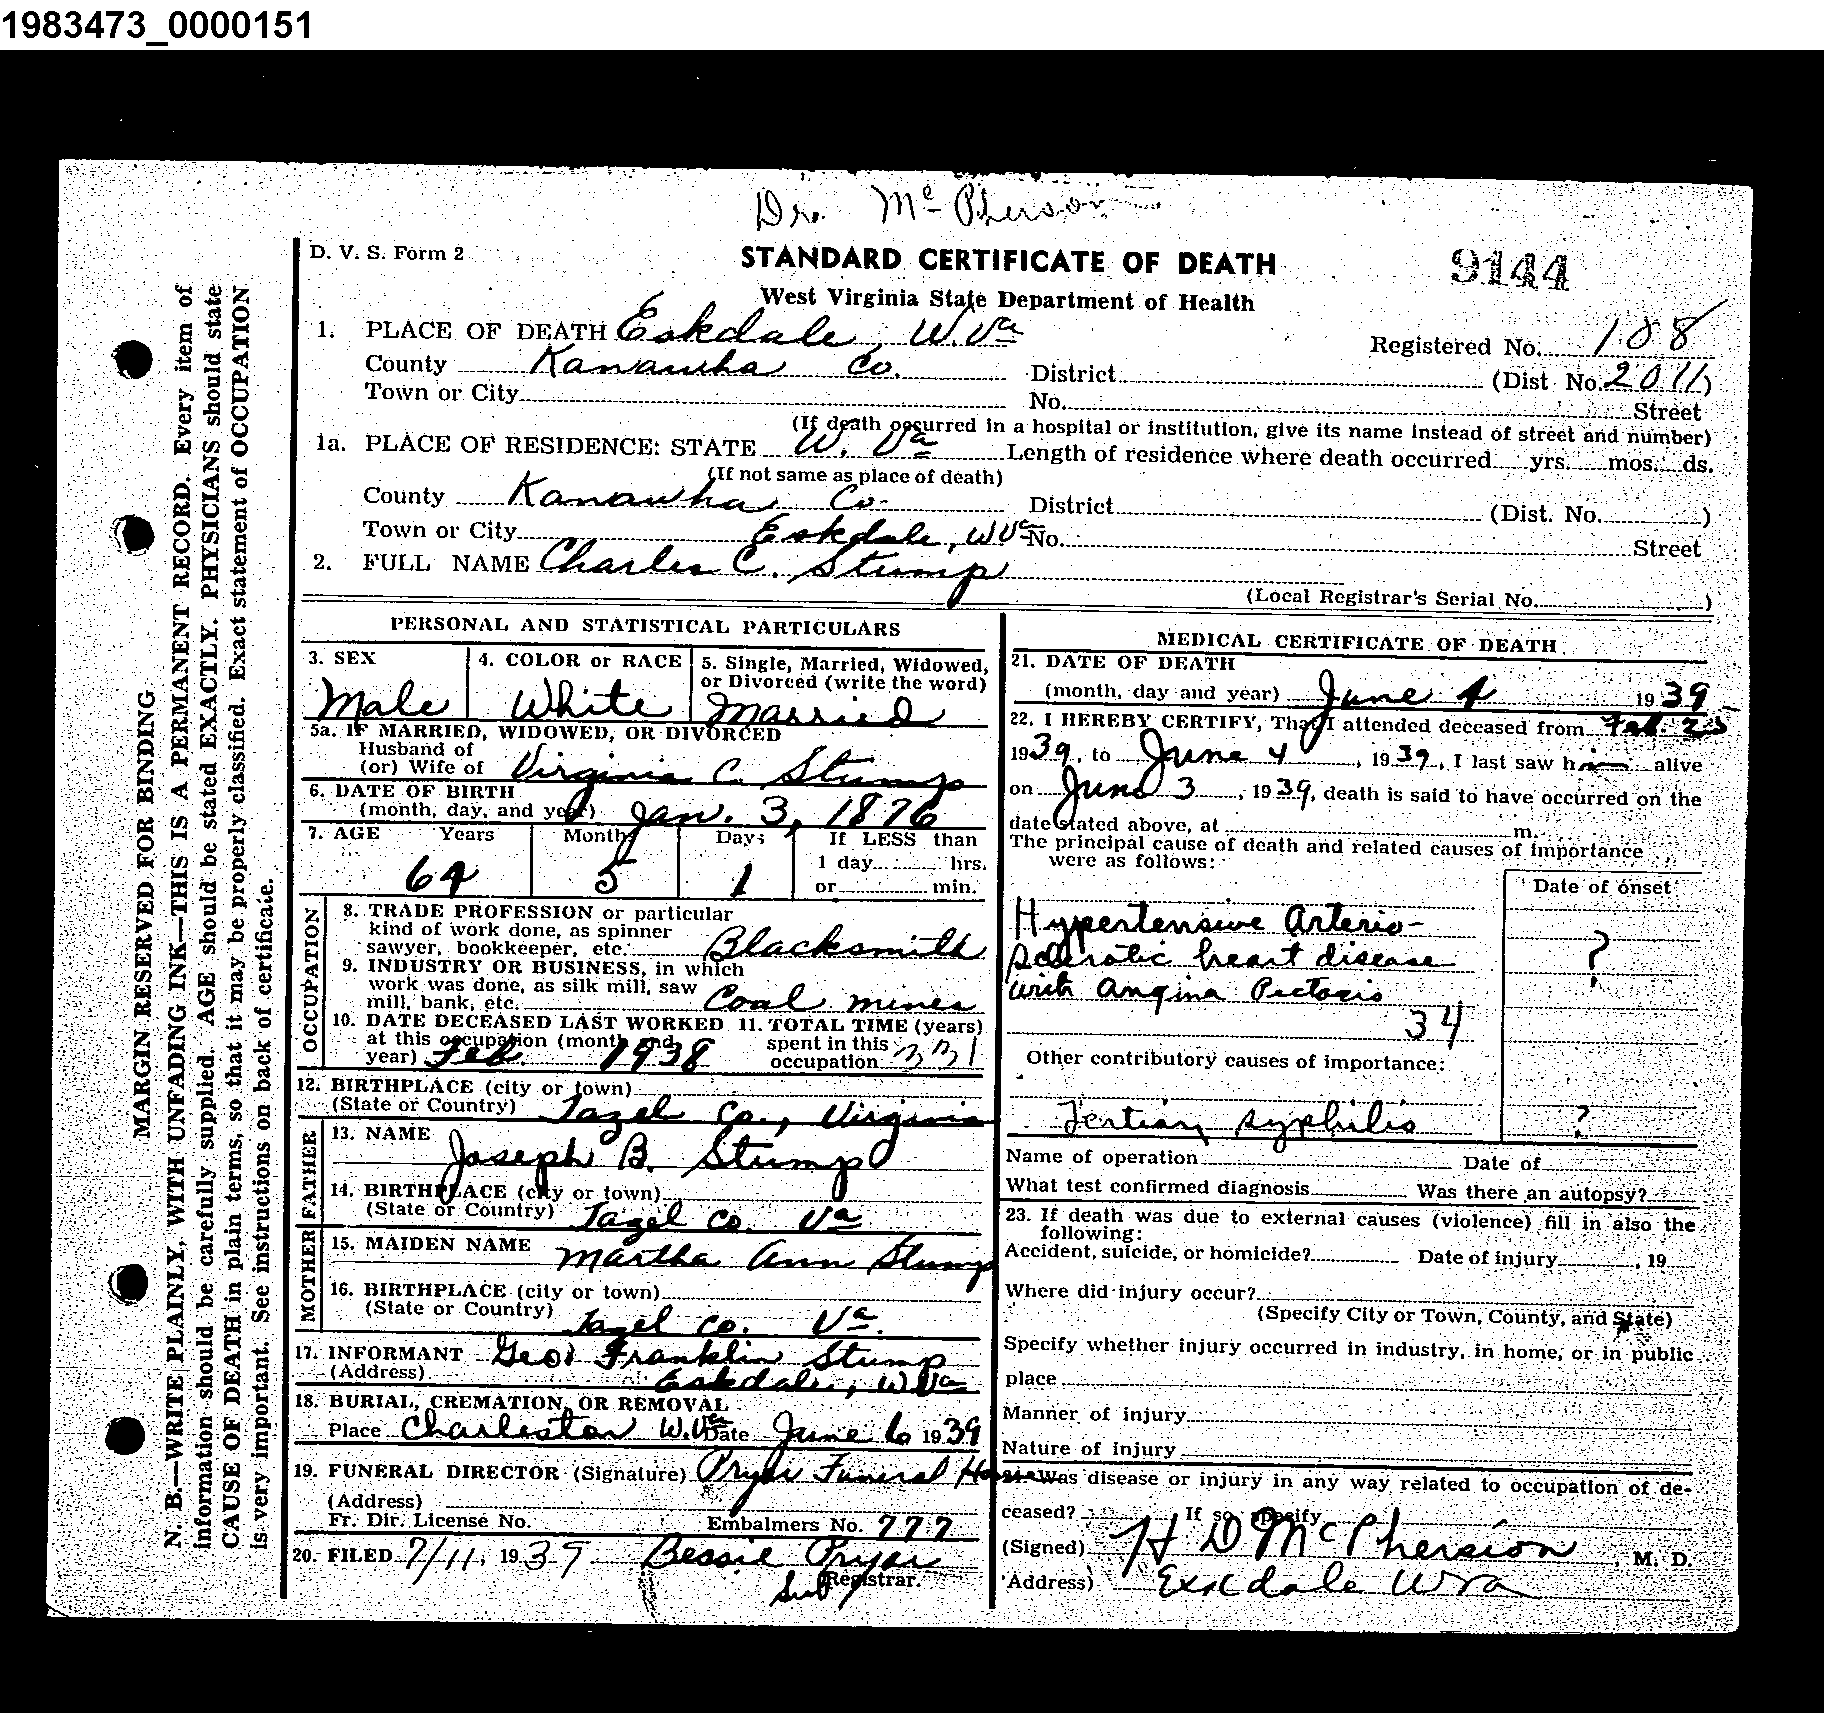 1983473_0000151
Dr. McPherson
D. V. S. Form 2
STANDARD CERTIFICATE OF DEATH
9144
West Virginia State Department of Health
1. PLACE OF DEATH Eskdale, W. Va
Registered No. 108
County Kanawha Co. District (Dist. No. 2011)
Town or City No. Street
(If death occurred in a hospital or institution, give its name instead of street and number)
1a. PLACE OF RESIDENCE: STATE W. Va Length of residence where death occurred yrs. mos. ds.
(If not same as place of death)
County Kanawha Co. District (Dist. No. )
Town or City Eskdale, W Va No. Street
2. FULL NAME Charles C. Stump
(Local Registrar's Serial No. )
MARGIN RESERVED FOR BINDING
N. B.—WRITE PLAINLY, WITH UNFADING INK—THIS IS A PERMANENT RECORD. Every item of
information should be carefully supplied. AGE should be stated EXACTLY. PHYSICIANS should state
CAUSE OF DEATH in plain terms, so that it may be properly classified. Exact statement of OCCUPATION
is very important. See instructions on back of certificate.
PERSONAL AND STATISTICAL PARTICULARS
3. SEX
Male
4. COLOR or RACE
White
5. Single, Married, Widowed,
or Divorced (write the word)
Married
5a. IF MARRIED, WIDOWED, OR DIVORCED
Husband of
(or) Wife of Virginia C. Stump
6. DATE OF BIRTH
(month, day, and year) Jan. 3, 1876
7. AGE Years Months Days If LESS than
1 day hrs.
or min.
64 5 1
OCCUPATION
8. TRADE PROFESSION or particular
kind of work done, as spinner
sawyer, bookkeeper, etc. Blacksmith
9. INDUSTRY OR BUSINESS, in which
work was done, as silk mill, saw
mill, bank, etc. Coal mines
10. DATE DECEASED LAST WORKED
at this occupation (month and
year) Feb. 1938
11. TOTAL TIME (years)
spent in this
occupation
12. BIRTHPLACE (city or town)
(State or Country) Tazel Co., Virginia
FATHER
13. NAME Joseph B. Stump
14. BIRTHPLACE (city or town)
(State or Country) Tazel Co. Va
MOTHER
15. MAIDEN NAME Martha Ann Stump
16. BIRTHPLACE (city or town)
(State or Country) Tazel Co. Va.
17. INFORMANT Geo. Franklin Stump
(Address) Eskdale, W Va
18. BURIAL, CREMATION, OR REMOVAL
Place Charleston W. Va Date June 6 1939
19. FUNERAL DIRECTOR (Signature) Pryor Funeral Home
(Address)
Fr. Dir. License No. Embalmers No. 777
20. FILED 7/11, 1939 Bessie Pryor
Sub Registrar.
MEDICAL CERTIFICATE OF DEATH
21. DATE OF DEATH
(month, day and year) June 4 1939
22. I HEREBY CERTIFY, That I attended deceased from Feb. 25
1939, to June 4, 1939, I last saw him alive
on June 3, 1939, death is said to have occurred on the
date stated above, at m.
The principal cause of death and related causes of importance
were as follows:
Date of onset
Hypertensive Arterio-
sclerotic heart disease ?
with Angina Pectoris
34
Other contributory causes of importance:
Tertiary syphilis ?
Name of operation Date of
What test confirmed diagnosis Was there an autopsy?
23. If death was due to external causes (violence) fill in also the
following:
Accident, suicide, or homicide? Date of injury , 19
Where did injury occur?
(Specify City or Town, County, and State)
Specify whether injury occurred in industry, in home, or in public
place
Manner of injury
Nature of injury
Was disease or injury in any way related to occupation of de-
ceased? If so, specify
(Signed) H D McPherson, M. D.
(Address) Eskdale W Va